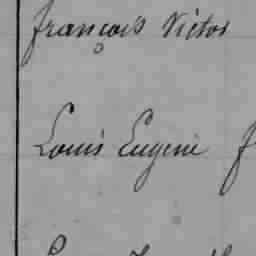 françois Victor
Louis Eugène